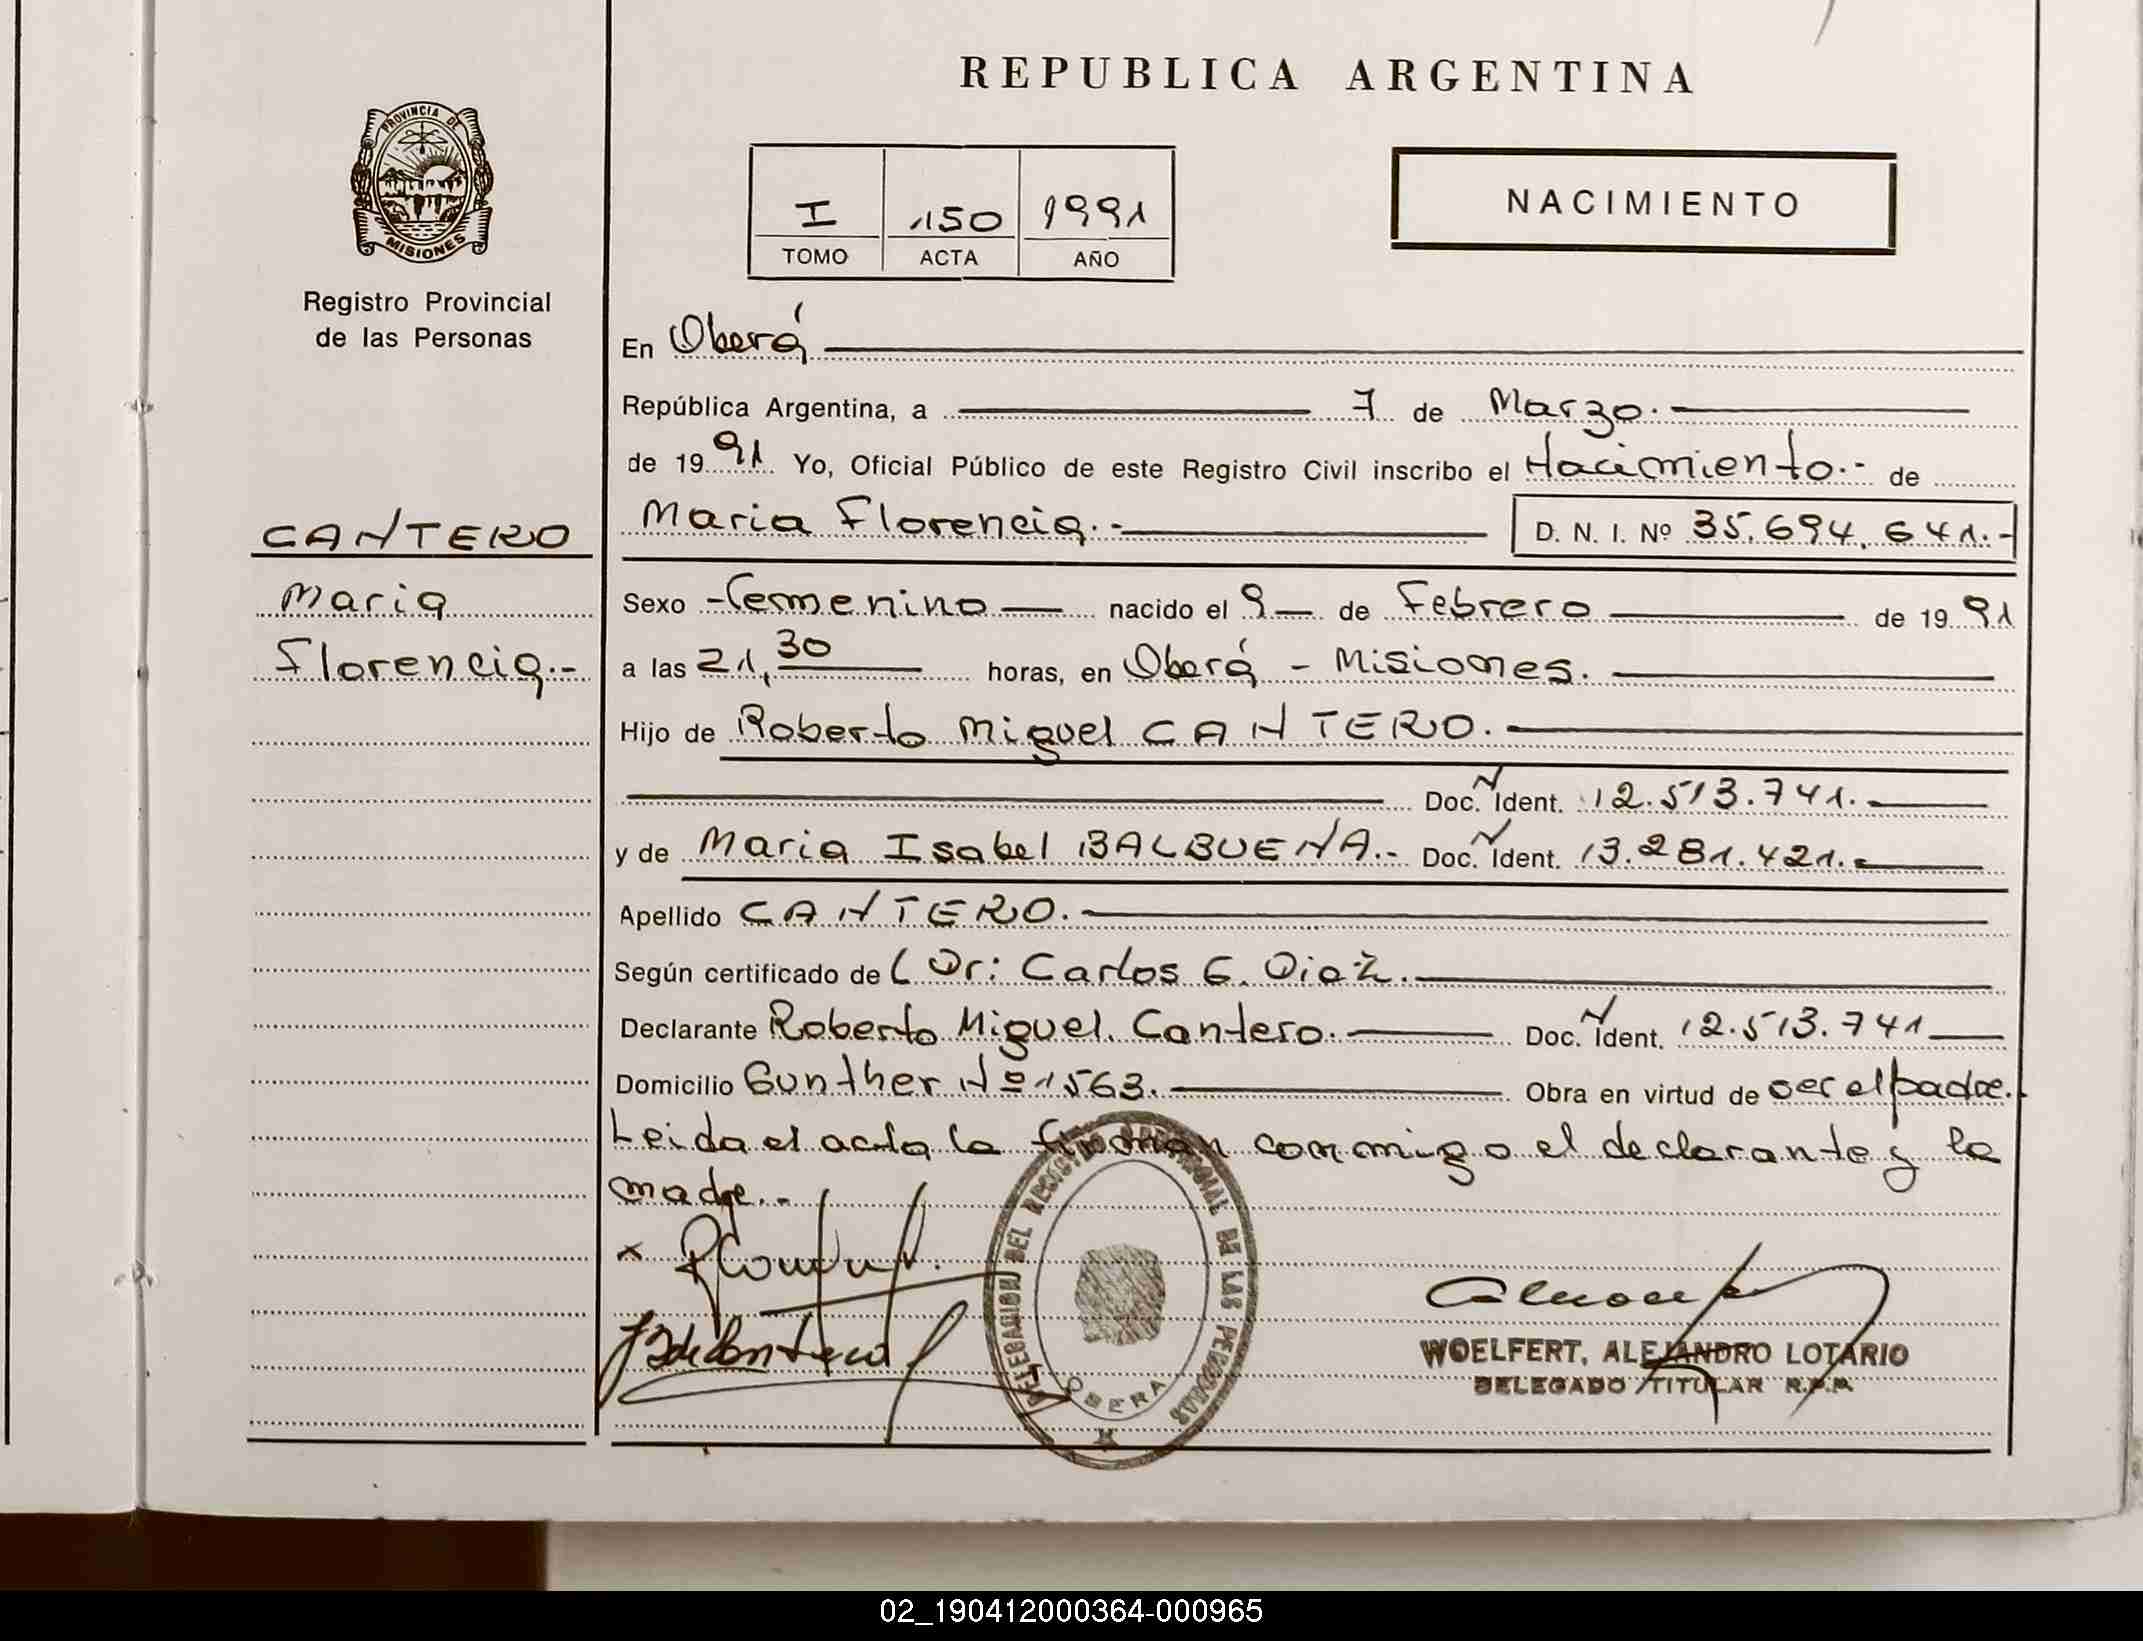 REPUBLICA ARGENTINA
PROVINCIA DE
MISIONES
Registro Provincial
de las Personas
I 150 1991
TOMO ACTA AÑO
NACIMIENTO
CANTERO
Maria
Florencia.-
En Oberá
República Argentina, a 7 de Marzo.
de 1991. Yo, Oficial Público de este Registro Civil inscribo el Nacimiento.- de
Maria Florencia.- D. N. I. Nº 35.694.641.-
Sexo Femenino nacido el 9 de Febrero de 1991
a las 21,30 horas, en Oberá - Misiones.
Hijo de Roberto Miguel CANTERO.
Doc. Ident. 12.513.741.
y de Maria Isabel BALBUENA.- Doc. Ident. 13.281.421.
Apellido CANTERO.
Según certificado de Dr: Carlos G. Diaz.
Declarante Roberto Miguel Cantero. Doc. Ident. 12.513.741
Domicilio Gunther Nº 1563. Obra en virtud de ser el padre.
Leida el acta la firman conmigo el declarante y la
madre.-
DELEGACION DEL REGISTRO PROVINCIAL DE LAS PERSONAS
OBERA
WOELFERT, ALEJANDRO LOTARIO
DELEGADO TITULAR R.P.P.
02_190412000364-000965